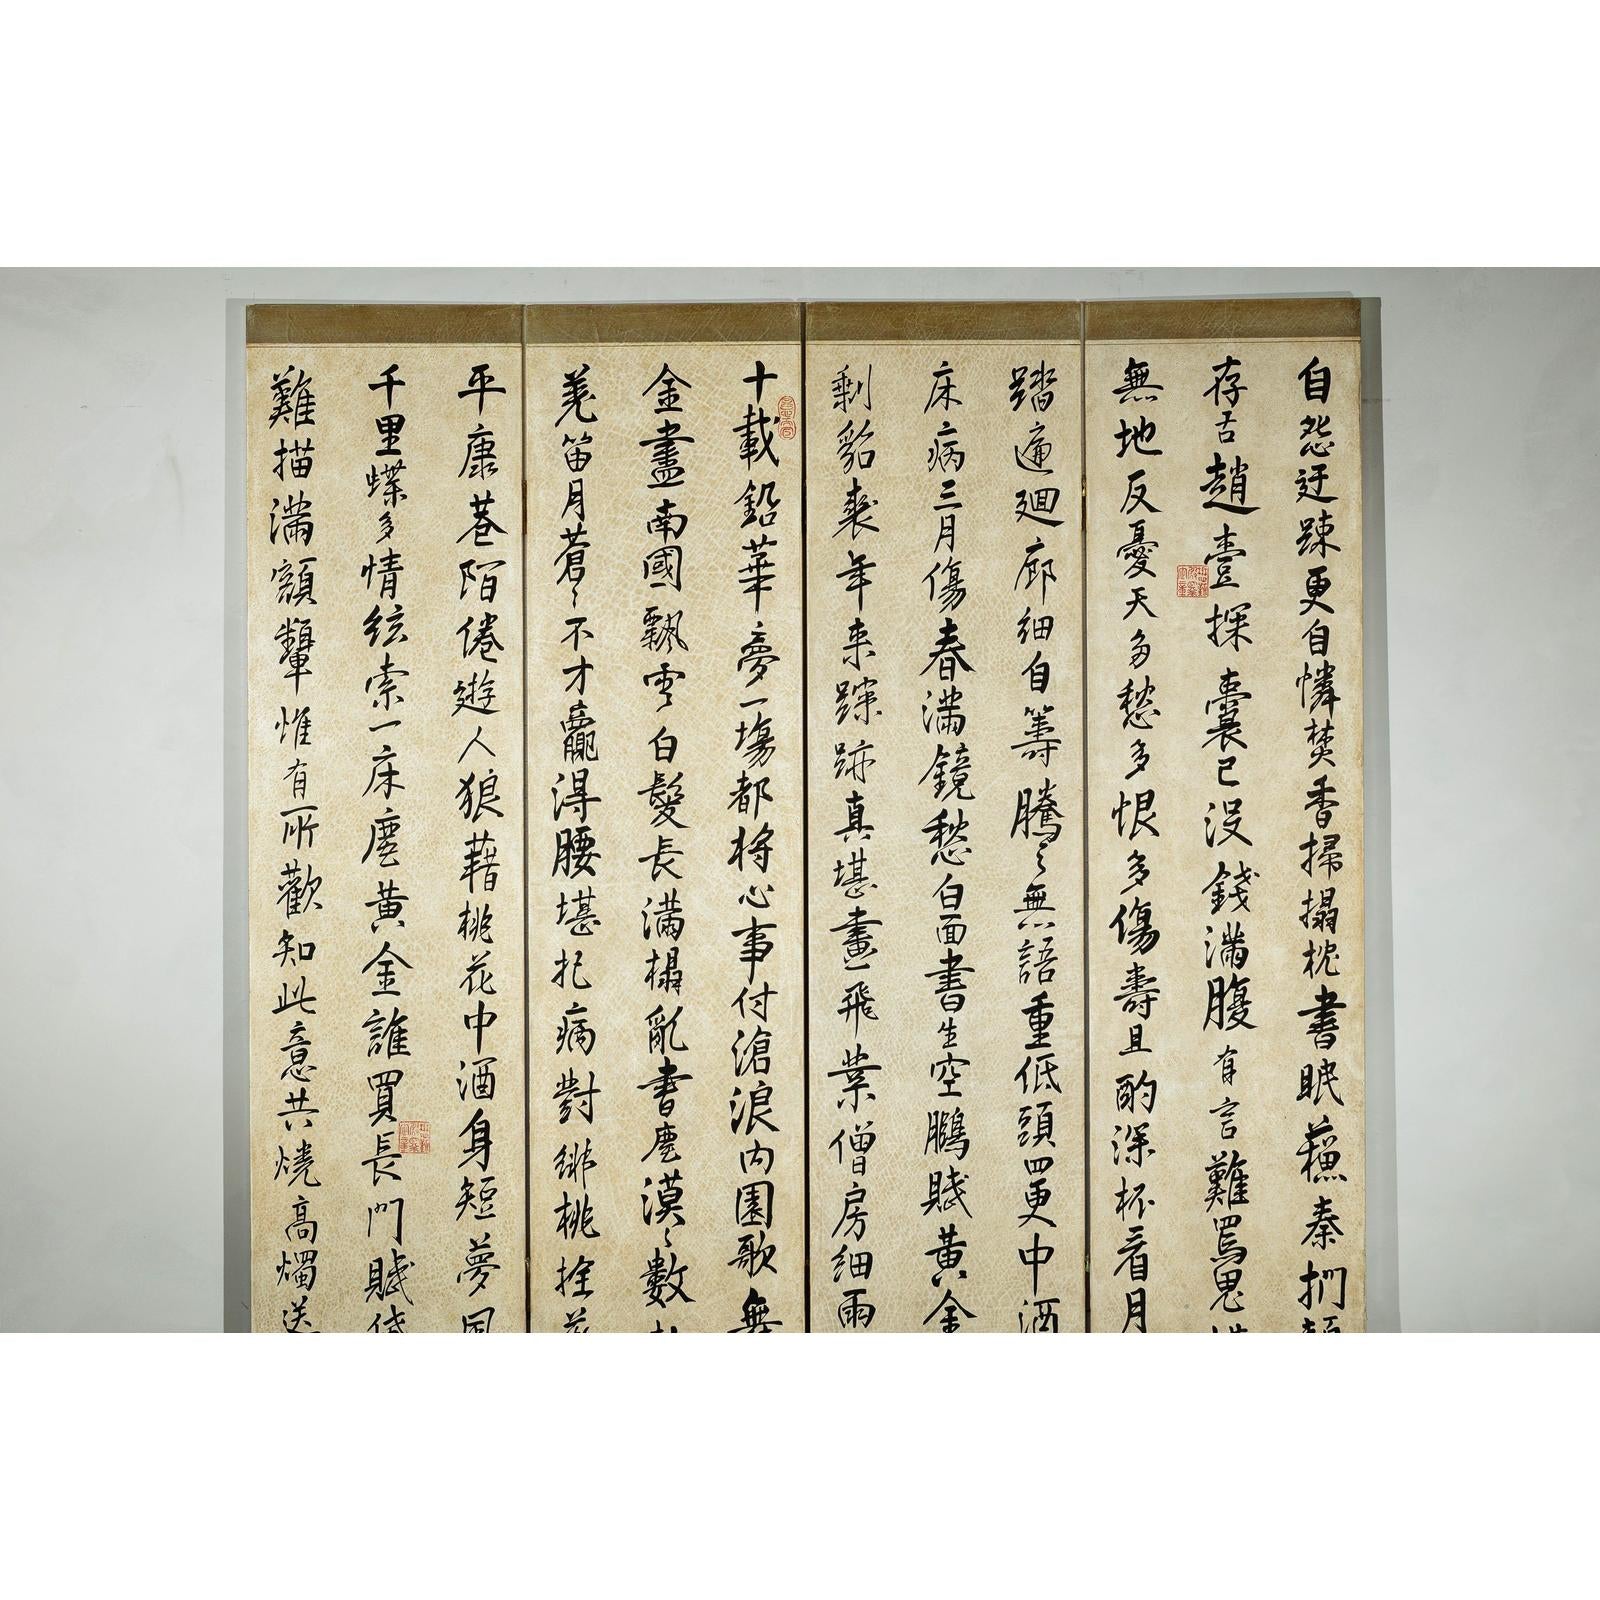 十載鉛華夢一場都將心事付滄浪內園歌無
金盡南國飄零白髮長滿榻亂書塵漠〻數
羗笛月蒼〻不才贏得腰堪把病對緋桃
平康巷陌倦遊人狼藉桃花中酒身短夢風
千里蝶多情絃索一床塵黃金誰買長門賦
難描滿額顰惟有所歡知此意共燒高燭送
自怨迂疎更自憐焚香掃榻枕書眠蘓秦捫頰
存舌趙壹探囊已沒錢滿腹有言難罵鬼
無地反憂天多愁多恨多傷壽且酌深杯看月
踏遍廻廊細自籌騰〻無語重低頭四更中酒
床病三月傷春滿鏡愁白面書生空鵬賦黃金
剩貂裘年來蹤跡真堪畫飛葉僧房細雨